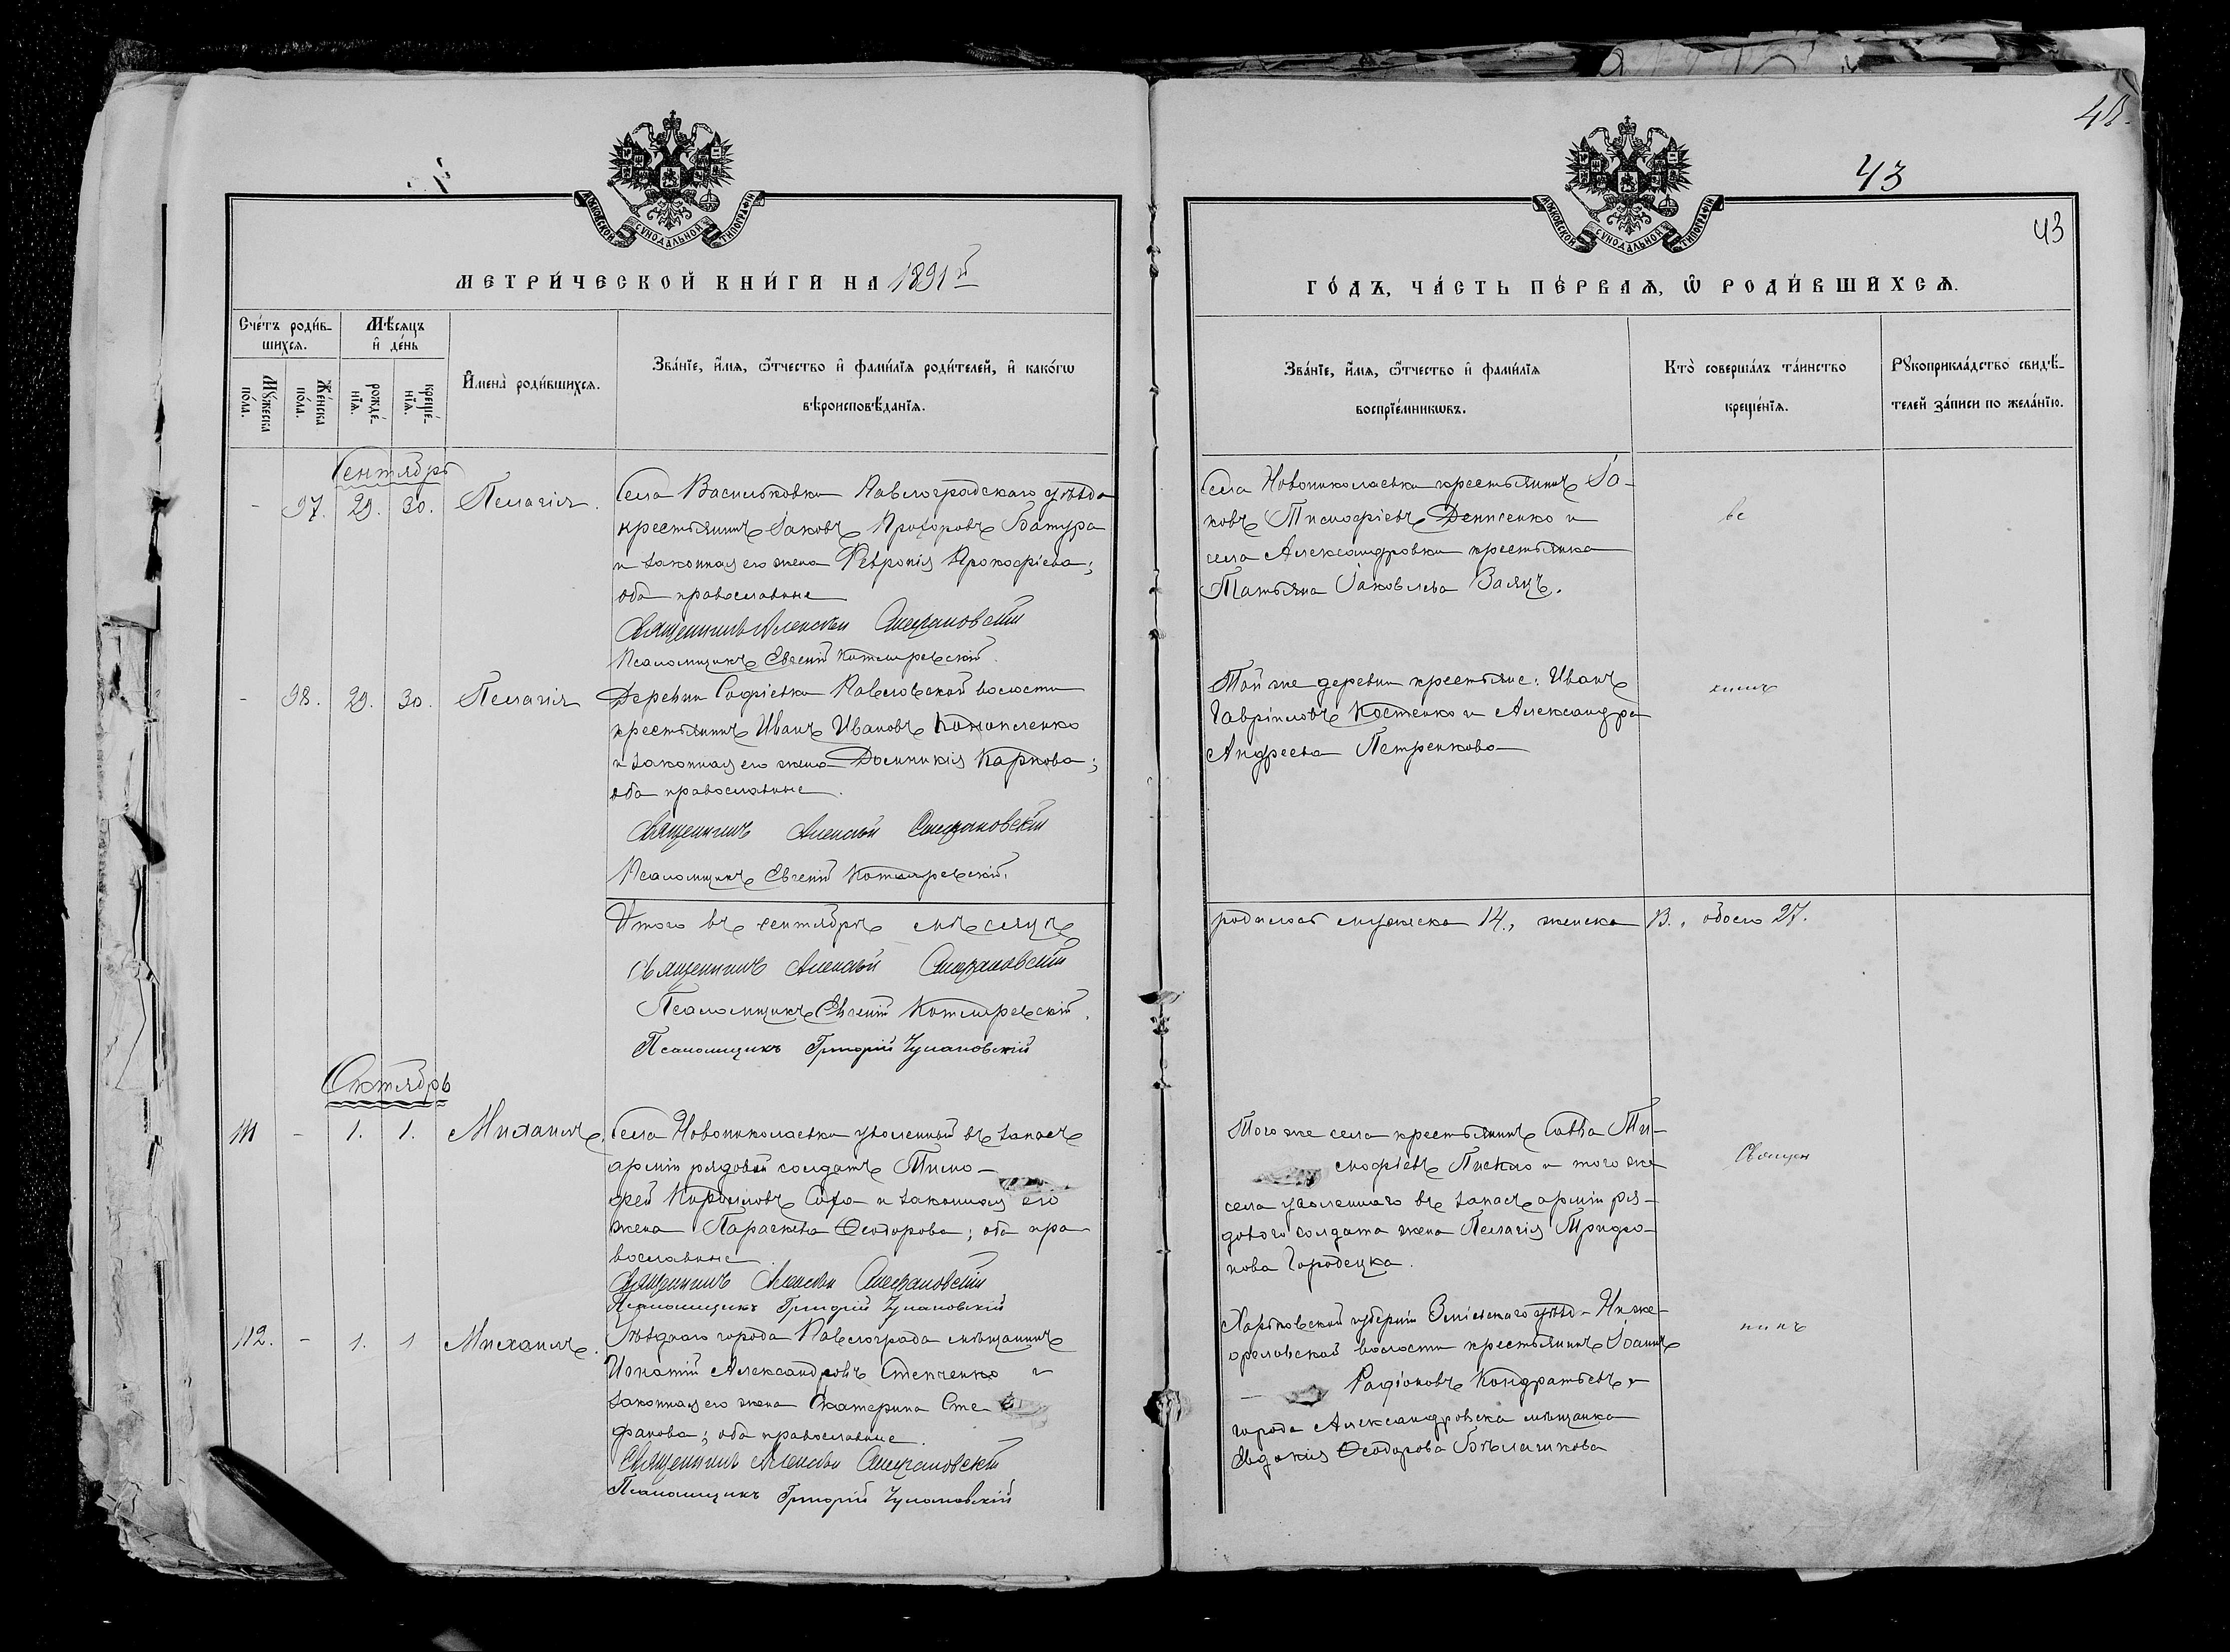 48.
43
43
МОСКОВСКОЙ СѴНОДАЛЬНОЙ ТИПОГРАФІИ
МОСКОВСКОЙ СѴНОДАЛЬНОЙ ТИПОГРАФІИ
МЕТРИ́ЧЕСКОЙ КНИ́ГИ НА 1891й
ГО́ДЪ, ЧА́СТЬ ПЕ́РВАѦ, Ѡ РОДИ́ВШИХСѦ.
Сче́тъ роди́в-
шихсѧ.
Мѣ́сѧцъ
и де́нь
Мꙋ́жеска
по́ла.
Же́нска
по́ла.
рожде́-
нїѧ.
креще́-
нїѧ.
Имена̀ роди́вшихсѧ.
Зва́нїе, и́мѧ, ѻ҆́тчество и фами́лїѧ роди́телей, и како́гѡ
вѣроисповѣ́данїѧ.
Зва́нїе, и́мѧ, ѻ҆́тчество и фами́лїѧ
воспрїе́мникѡвъ.
Кто̀ соверша́лъ та́инство
креще́нїѧ.
Рꙋкоприкла́дство свидѣ́-
телей за́писи по жела́нїю.
Сентябрь
- 97. 29. 30. Пелагія.
Села Васильковки Павлоградскаго уѣзда
крестьянинъ Іаковъ Прохоровъ Батура
и законная его жена Февронія Прокофіева;
оба православные
Священникъ Алексѣй Стефановскій
Псаломщикъ Евгеній Котляревскій.
Села Новониколаевки крестьянинъ Іа-
ковъ Тимофіевъ Денисенко и
села Александровки крестьянка
Татьяна Іаковлева Заяцъ.
- 98. 29. 30. Пелагія
Деревни Софіевки Павловской волости
крестьянинъ Иванъ Ивановъ Конопленко
и законная его жена Домникія Карпова;
оба православные.
Священникъ Алексѣй Стефановскій
Псаломщикъ Евгеній Котляревскій.
Той же деревни крестьяне: Иванъ
Гавріиловъ Костенко и Александра
Андреева Петренкова
Итого въ сентябрѣ мѣсяцѣ
родилось мужеска 14., женска 13., обоего 27.
Священникъ Алексѣй Стефановскій
Псаломщикъ Евгеній Котляревскій.
Псаломщикъ Григорій Чулановскій
Октябрь
111 - 1. 1. Михаилъ.
Села Новониколаевки уволенный въ запасъ
арміи рядовой солдатъ Тимо-
фей Кирилловъ Соха и законная его
жена Параскева Ѳеодорова; оба пра-
вославные.
Священникъ Алексѣй Стефановскій
Псаломщикъ Григорій Чулановскій
Того же села крестьянинъ Савва Ти-
мофіевъ и того же
села уволеннаго въ запасъ арміи ря-
доваго солдата жена Пелагія Трифо-
нова Городецка.
Священ
112. - 1. 1 Михаилъ.
Уѣзднаго города Павлограда мѣщанинъ
Игнатій Александровъ Степченко и
законная его жена Екатерина Сте
фанова; оба православные.
Священникъ Алексѣй Стефановскій
Псаломщикъ Григорій Чулановскій
Харьковской губерніи Зміевскаго уѣзд- Ниже-
орельской волости крестьянинъ Іоаннъ
Родіоновъ Кондратьевъ и
города Александровска мѣщанка
Евдокія Ѳеодорова Бѣланикова
никъ